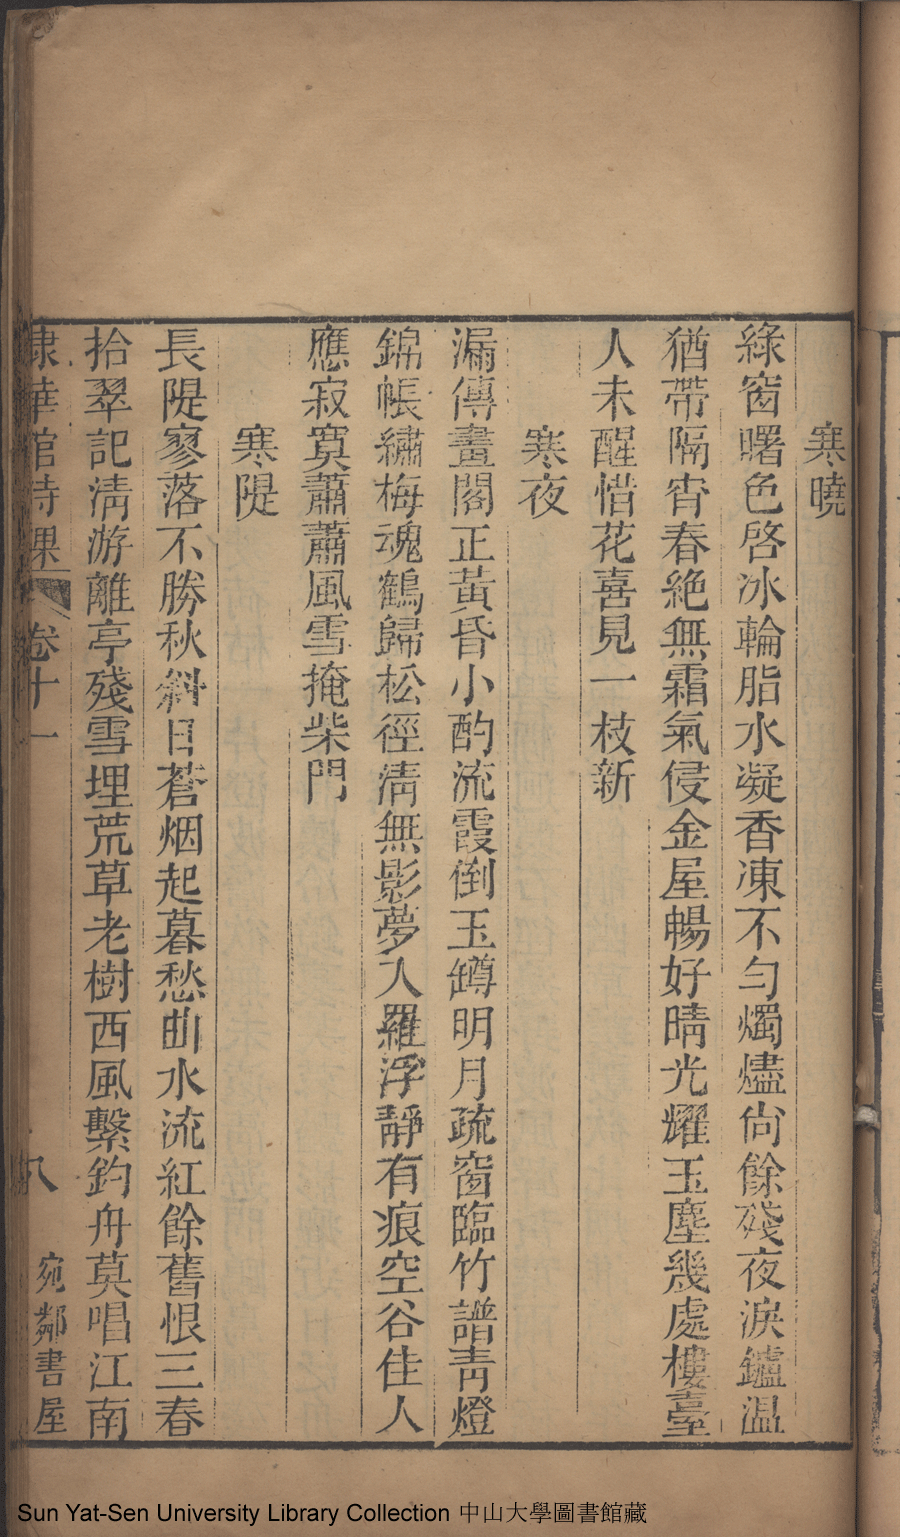 寒曉
綠窗曙色啓冰輪脂水凝香凍不勻燭燼尙餘殘夜淚鑪温
猶帶隔宵春絶無霜氣侵金屋暢好晴光耀玉塵幾處樓臺
人未醒惜花喜見一枝新
寒夜
漏傳畫閣正黃昏小酌流霞倒玉罇明月疏窗臨竹譜靑燈
錦帳繡梅魂鶴歸松徑淸無影夢入羅浮靜有痕空谷佳人
應寂寞蕭蕭風雪掩柴門
寒隄
長隄寥落不勝秋斜日蒼烟起暮愁曲水流紅餘舊恨三春
拾翠記淸游離亭殘雪埋荒草老樹西風繫釣舟莫唱江南
棣華館詩課 卷十一 八 宛鄰書屋
Sun Yat-Sen University Library Collection 中山大學圖書館藏